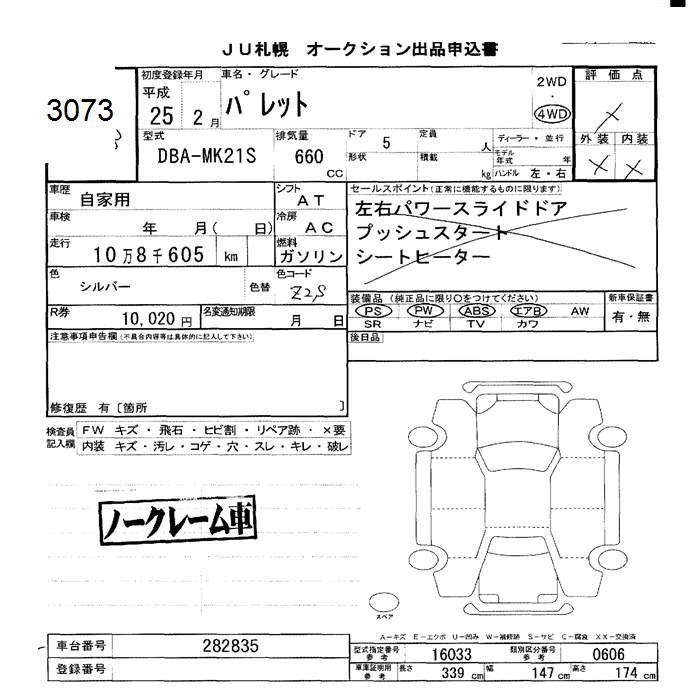 JU札幌 オークション出品申込書
3073
初度登録年月 車名・グレード 2WD 評価点
平成 パレット ・
25 2月 4WD
外装 内装
型式 排気量 ドア 5 定員 人 ディーラー・並行
DBA-MK21S 660 CC 形状 積載 kg モデル年式 年
ハンドル 左・右
車歴 自家用 シフト AT セールスポイント(正常に機能するものに限ります)
車検 年 月( 日) 冷房 AC 左右パワースライドドア
走行 10万8千605 km 燃料 ガソリン プッシュスタート
シートヒーター
色 シルバー 色替 色コード Z2S
装備品(純正品に限り○をつけてください) 新車保証書
R券 10,020円 名変通知期限 月 日 PS PW ABS エアB AW 有・無
SR ナビ TV カワ
注意事項申告欄(不具合内容等は具体的に記入して下さい) 後日品
修復歴 有〔箇所 〕
検査員記入欄 FW キズ・飛石・ヒビ割・リペア跡・×要
内装 キズ・汚レ・コゲ・穴・スレ・キレ・破レ
ノークレーム車
スペア
A-キズ E-エクボ U-凹み W-補修跡 S-サビ C-腐食 XX-交換済
車台番号 282835 型式指定番号 参考 16033 類別区分番号 参考 0606
登録番号 車庫証明用 参考 長さ 339cm 幅 147cm 高さ 174cm